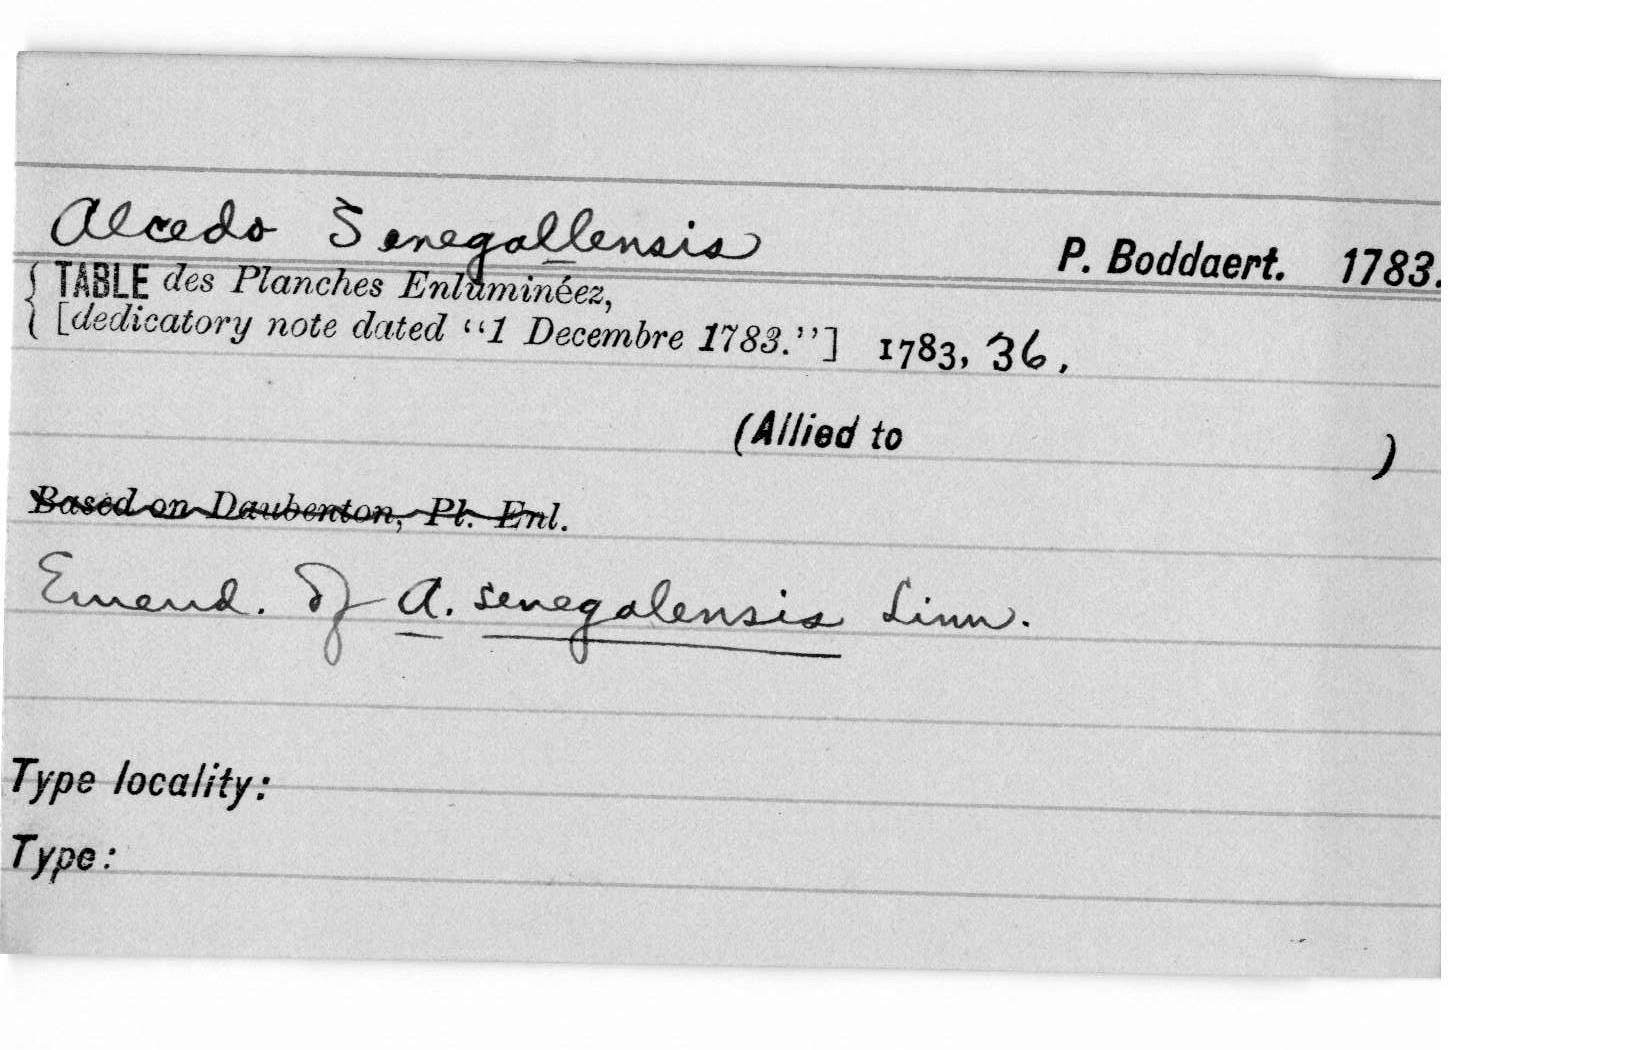 Alcedo Senegallensis P. Boddaert. 1783.
{ TABLE des Planches Enluminéez,
[dedicatory note dated “1 Decembre 1783.”] 1783, 36.
(Allied to )
Based on Daubenton, Pl. Enl.
Emend. of A. senegalensis Linn.
Type locality:
Type: